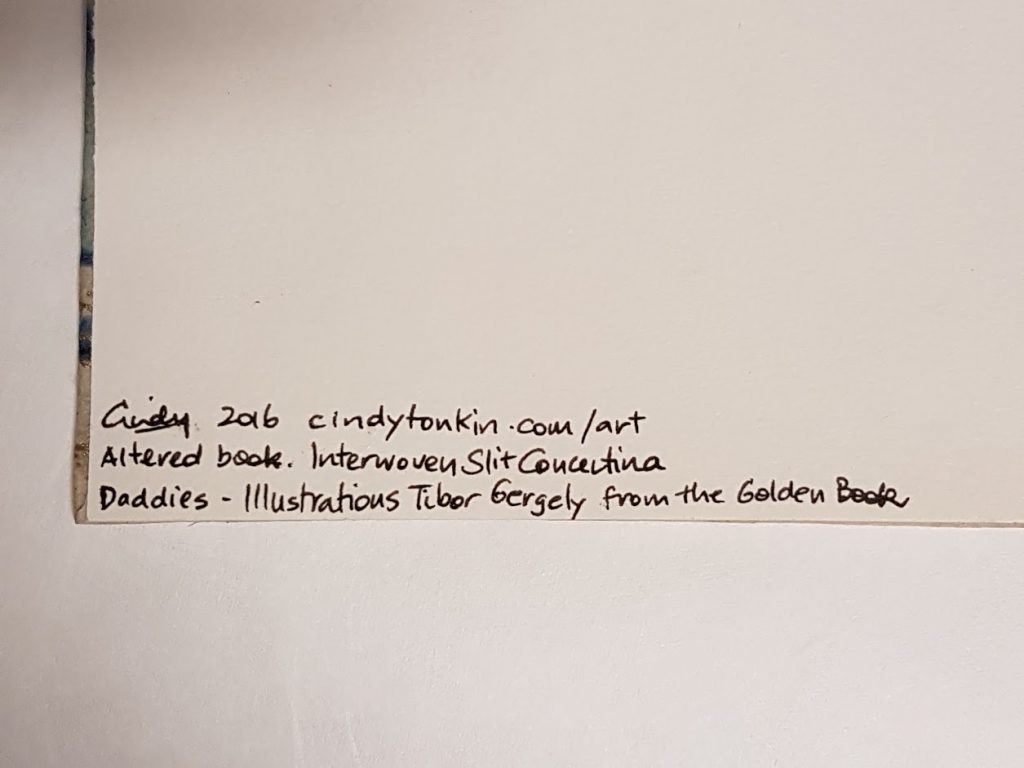 Cindy 2016 cindytonkin.com/art
Altered book. Interwoven Slit Concertina
Daddies - Illustrations Tibor Gergely from the Golden Book